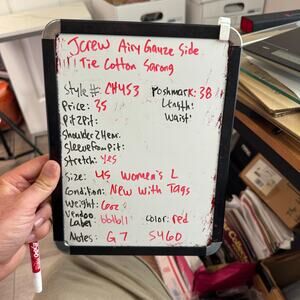 JCrew Airy Gauze Side
Tie Cotton Sarong
Style #: CH453 Poshmark: 38
Price: 35 Length:
Pit2Pit: Waist:
Shoulder2Hem:
SleevefromPit:
Stretch: yes
Size: 45 Women's L
Condition: New with Tags
Weight: 6oz
Vendoo
Label color: red
Notes: G7 5460
EXPO